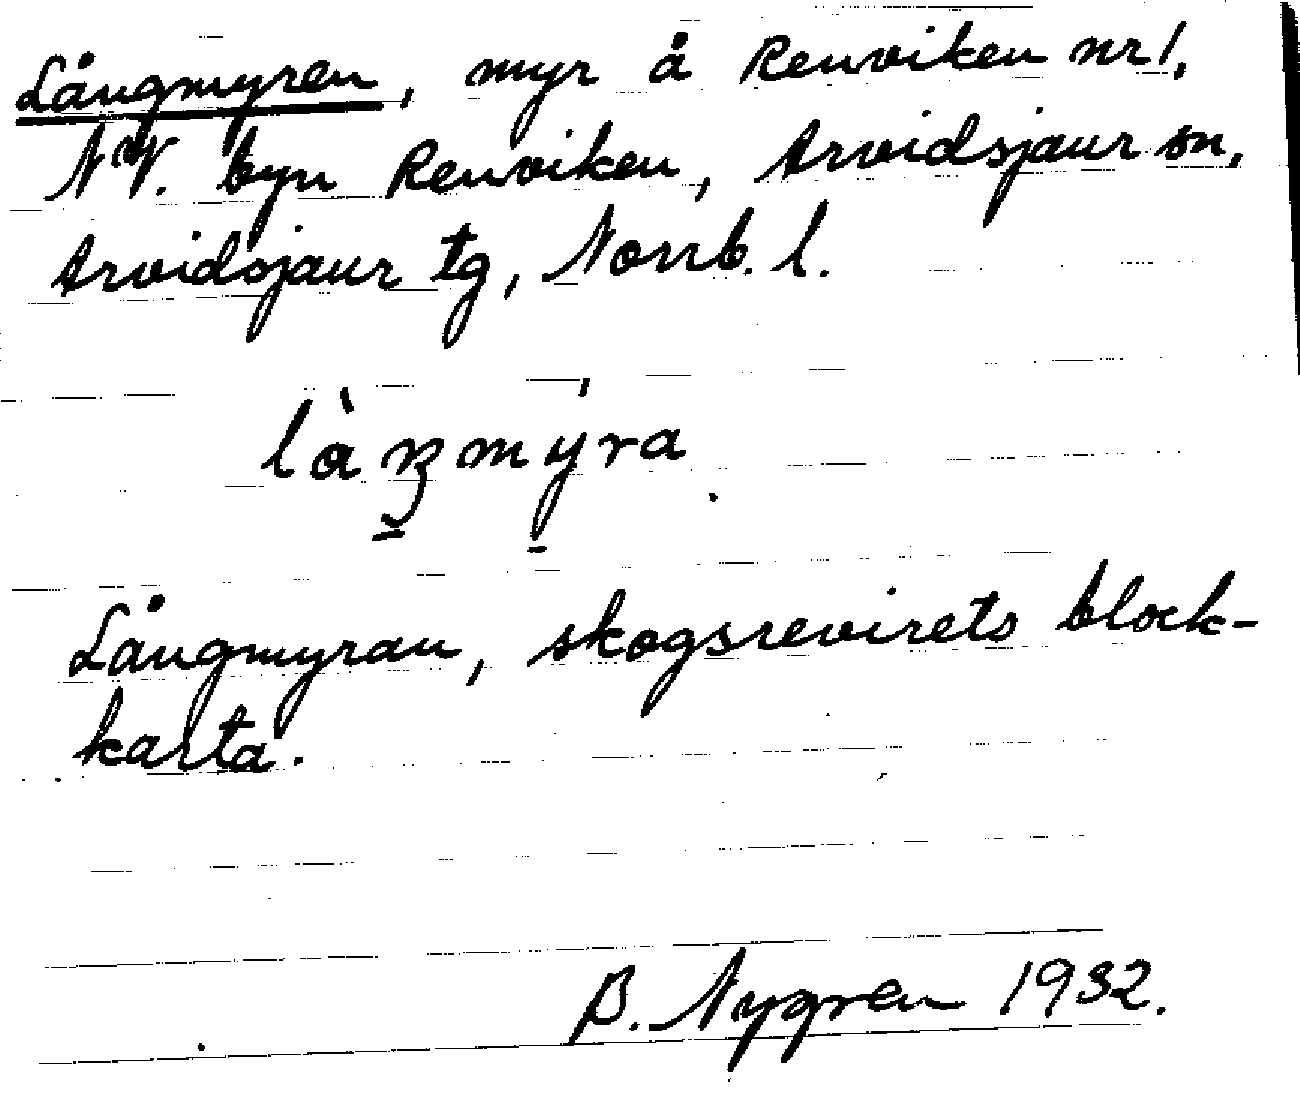 Långmyren, myr å Renviken nr 1,
NV. byn Renviken, Arvidsjaur sn,
Arvidsjaur tg, Norrb. l.
làŋmy̍ra
Långmyran, skogsrevirets block-
karta.
B. Nygren 1932.